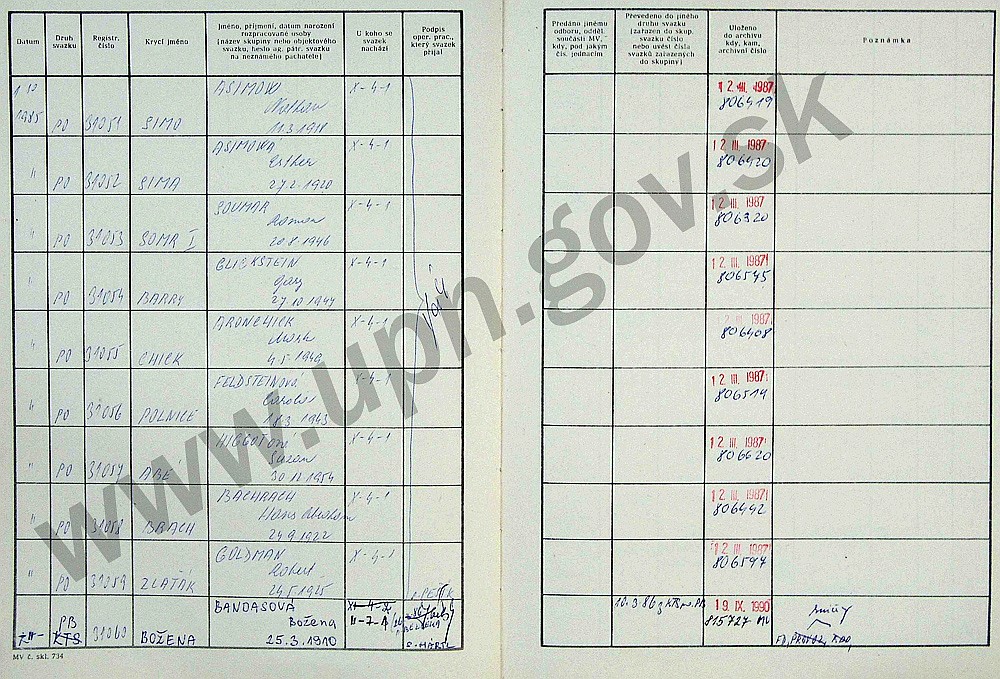 Datum
Druh svazku
Registr. číslo
Krycí jméno
Jméno, příjmení, datum narození
rozpracované osoby
(název skupiny nebo objektového
svazku, heslo ag. pátr. svazku
na neznámého pachatele)
U koho se
svazek
nachází
Podpis
oper. prac.,
který svazek
přijal
Předáno jinému
odboru, odděl.
součásti MV,
kdy, pod jakým
čís. jednacím
Převedeno do jiného
druhu svazku
(zařazen do skup.
svazku číslo
nebo uvést čísla
svazků zařazených
do skupiny)
Uloženo
do archivu
kdy, kam,
archivní číslo
Poznámka
1985 PO 31051 SIMO
ASIMOW
Nathan
11.3.1918
X-4-1
12. III. 1987
806419
" PO 31052 SIMA
ASIMOWÁ
Esther
27.2.1920
X-4-1
12. III. 1987
806420
" PO 31053 SOMR I
SOUMAR
Roman
20.8.1946
X-4-1
12. III. 1987
806320
" PO 31054 BARRY
GLICKSTEIN
Gary
27.10.1947
X-4-1
12. III. 1987
806545
" PO 31055 CHICK
ARONCHICK
4.5.1949
X-4-1
2. III. 1987
806408
" PO 31056 POLNICE
FELDSTEINOVÁ
18.3.1943
X-4-1
12. III. 1987
806514
" PO 31057 ABÉ
Suzan
X-4-1
12. III. 1987
806620
" PO 31058 BRACH
BACHRACH
Hans Abraham
24.9.1922
X-4-1
12. III. 1987
806442
" PO 31059 ZLAŤÁK
GOLDMAN
Robert
24.5.1925
X-4-1
12. III. 1987
806597
PB
KTS 31060 BOŽENA
BANDASOVÁ
Božena
25.3.1910
X-4-
II-7-A
19. IX. 1990
815727 MV
MV č. skl. 734
www.upn.gov.sk